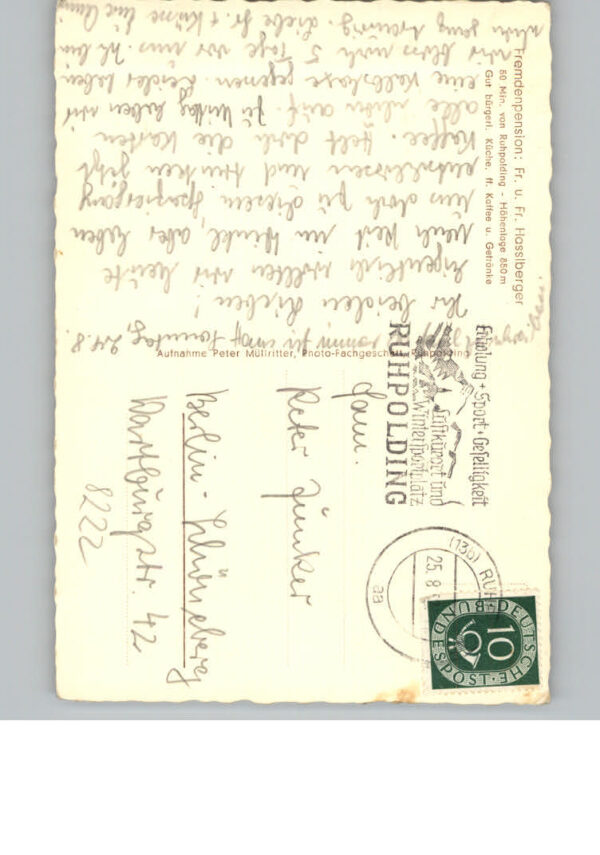 Fremdenpension: Fr. u. Fr. Hasslberger
50 Min. von Ruhpolding - Höhenlage 850 m
Gut bürgerl. Küche, ff. Kaffee u. Getränke
Sonntag, 24.8.
Ihr beiden Lieben!
Eigentlich wollten wir heute
nach Reit im Winkl, aber haben
uns doch zu diesem Spaziergang
entschlossen und trinken jetzt
Kaffee. Hebt doch die Karten
alle schön auf. Zu Mittag haben wir
eine Kalbshaxe gegessen. Leider haben
wir bloss noch 5 Tage vor uns. Ich bin
schon ganz traurig. Liebe Gr + Küsse Eure
Aufnahme Peter Müllritter, Photo-Fachgeschäft, Ruhpolding
Erholung + Sport + Geselligkeit
Luftkurort und
Wintersportplatz
RUHPOLDING
(13b) RUH
25.8
aa
DEUTSCHE
BUNDESPOST
10
Fam.
Peter Junker
Berlin-Schöneberg
Wartburgstr. 42
8222